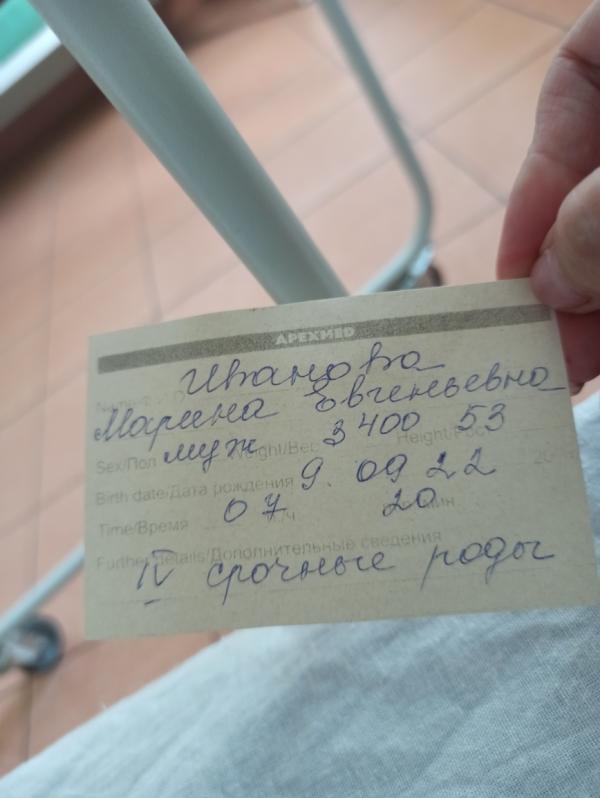 APEXMED
Иванова
Марина Евгеньевна
Sex/Пол муж Weight/Вес 3400 Height/Рост 53
Birth date/Дата рождения 9. 09 22 20
Time/Время 07 ч 20 мин
Further details/Дополнительные сведения
IV срочные роды